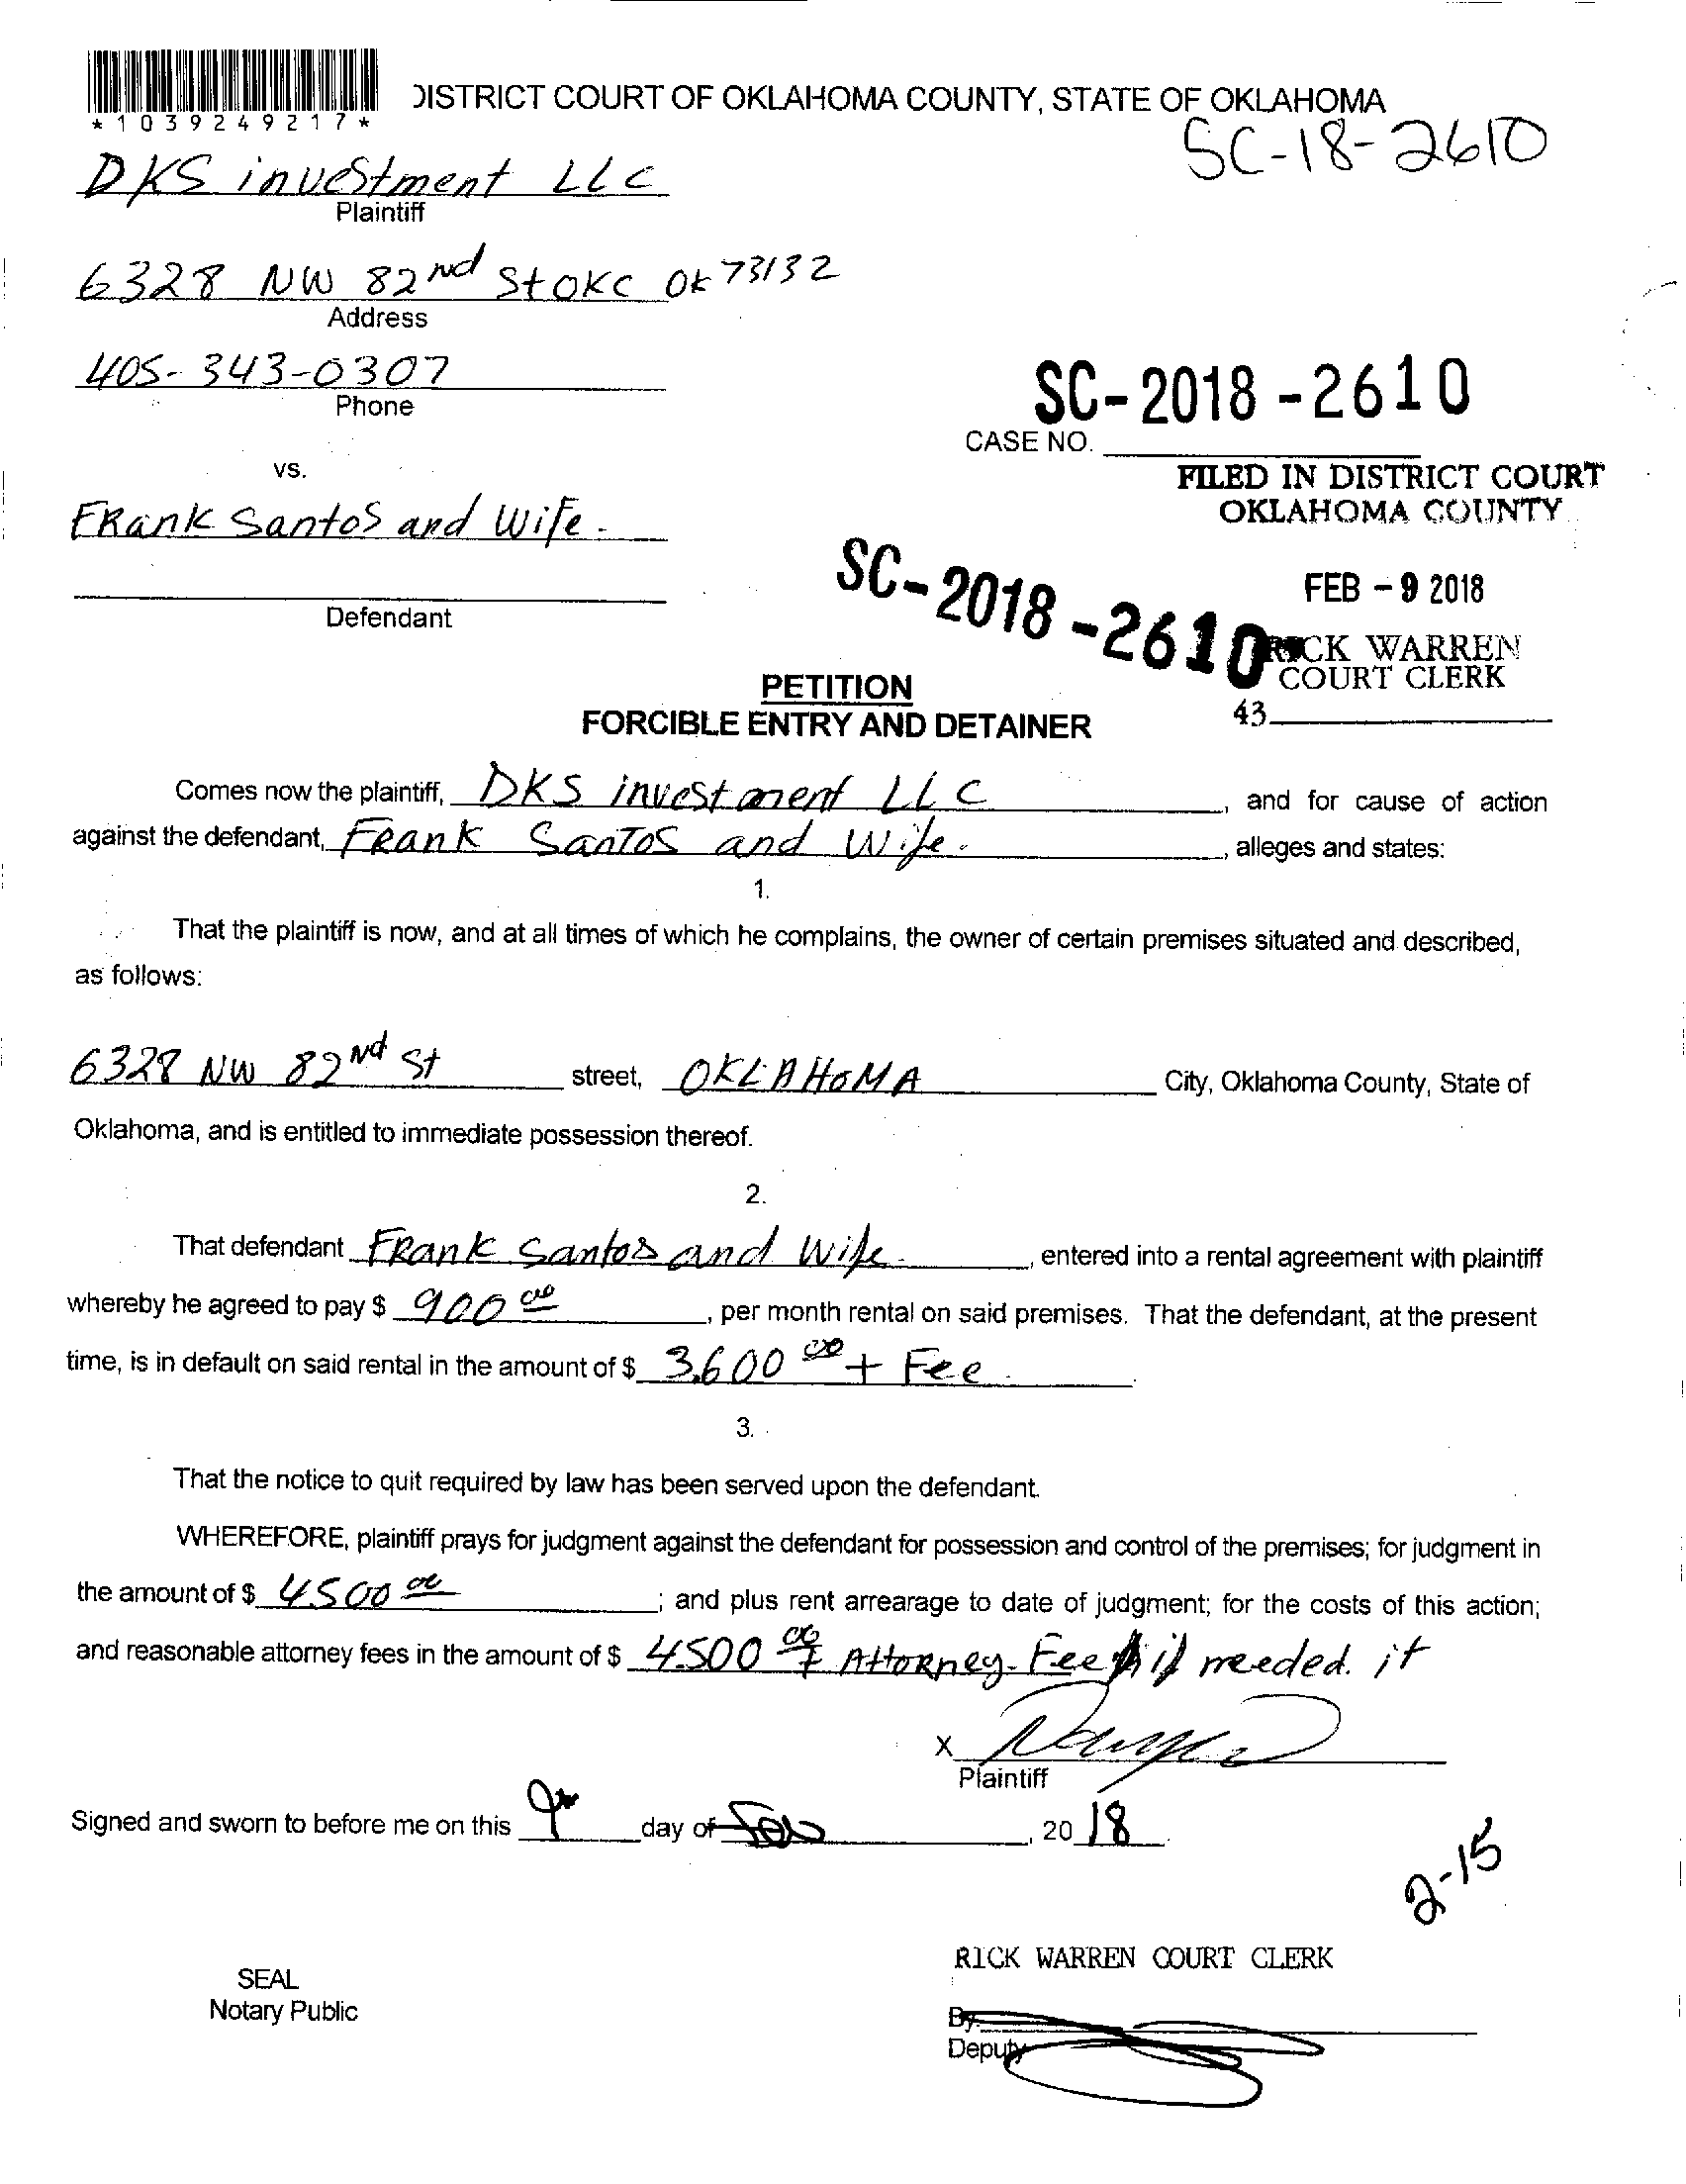 *1039249217*
DISTRICT COURT OF OKLAHOMA COUNTY, STATE OF OKLAHOMA
SC-18-2610
DKS investment LLC
Plaintiff
6328 NW 82nd St OKC OK 73132
Address
405-343-0307
Phone
SC-2018-2610
CASE NO.
vs.
FILED IN DISTRICT COURT
OKLAHOMA COUNTY
FRank Santos and Wife.
SC-2018-2610
FEB - 9 2018
Defendant
RICK WARREN
COURT CLERK
43
PETITION
FORCIBLE ENTRY AND DETAINER
Comes now the plaintiff, DKS investment LLC, and for cause of action
against the defendant, FRank SanTos and Wife., alleges and states:
1.
That the plaintiff is now, and at all times of which he complains, the owner of certain premises situated and described,
as follows:
6328 NW 82nd St street, OKLAHOMA City, Oklahoma County, State of
Oklahoma, and is entitled to immediate possession thereof.
2.
That defendant FRank Santos and Wife., entered into a rental agreement with plaintiff
whereby he agreed to pay $ 900 00, per month rental on said premises. That the defendant, at the present
time, is in default on said rental in the amount of $ 3,600 00 + Fee.
3.
That the notice to quit required by law has been served upon the defendant.
WHEREFORE, plaintiff prays for judgment against the defendant for possession and control of the premises; for judgment in
the amount of $ 4500 00; and plus rent arrearage to date of judgment; for the costs of this action;
and reasonable attorney fees in the amount of $ 4500 00 + AttoRney-Fee if needed. it
X
Plaintiff
Signed and sworn to before me on this 9th day of Feb, 20 18.
2-15
RICK WARREN COURT CLERK
SEAL
Notary Public
By:
Deputy